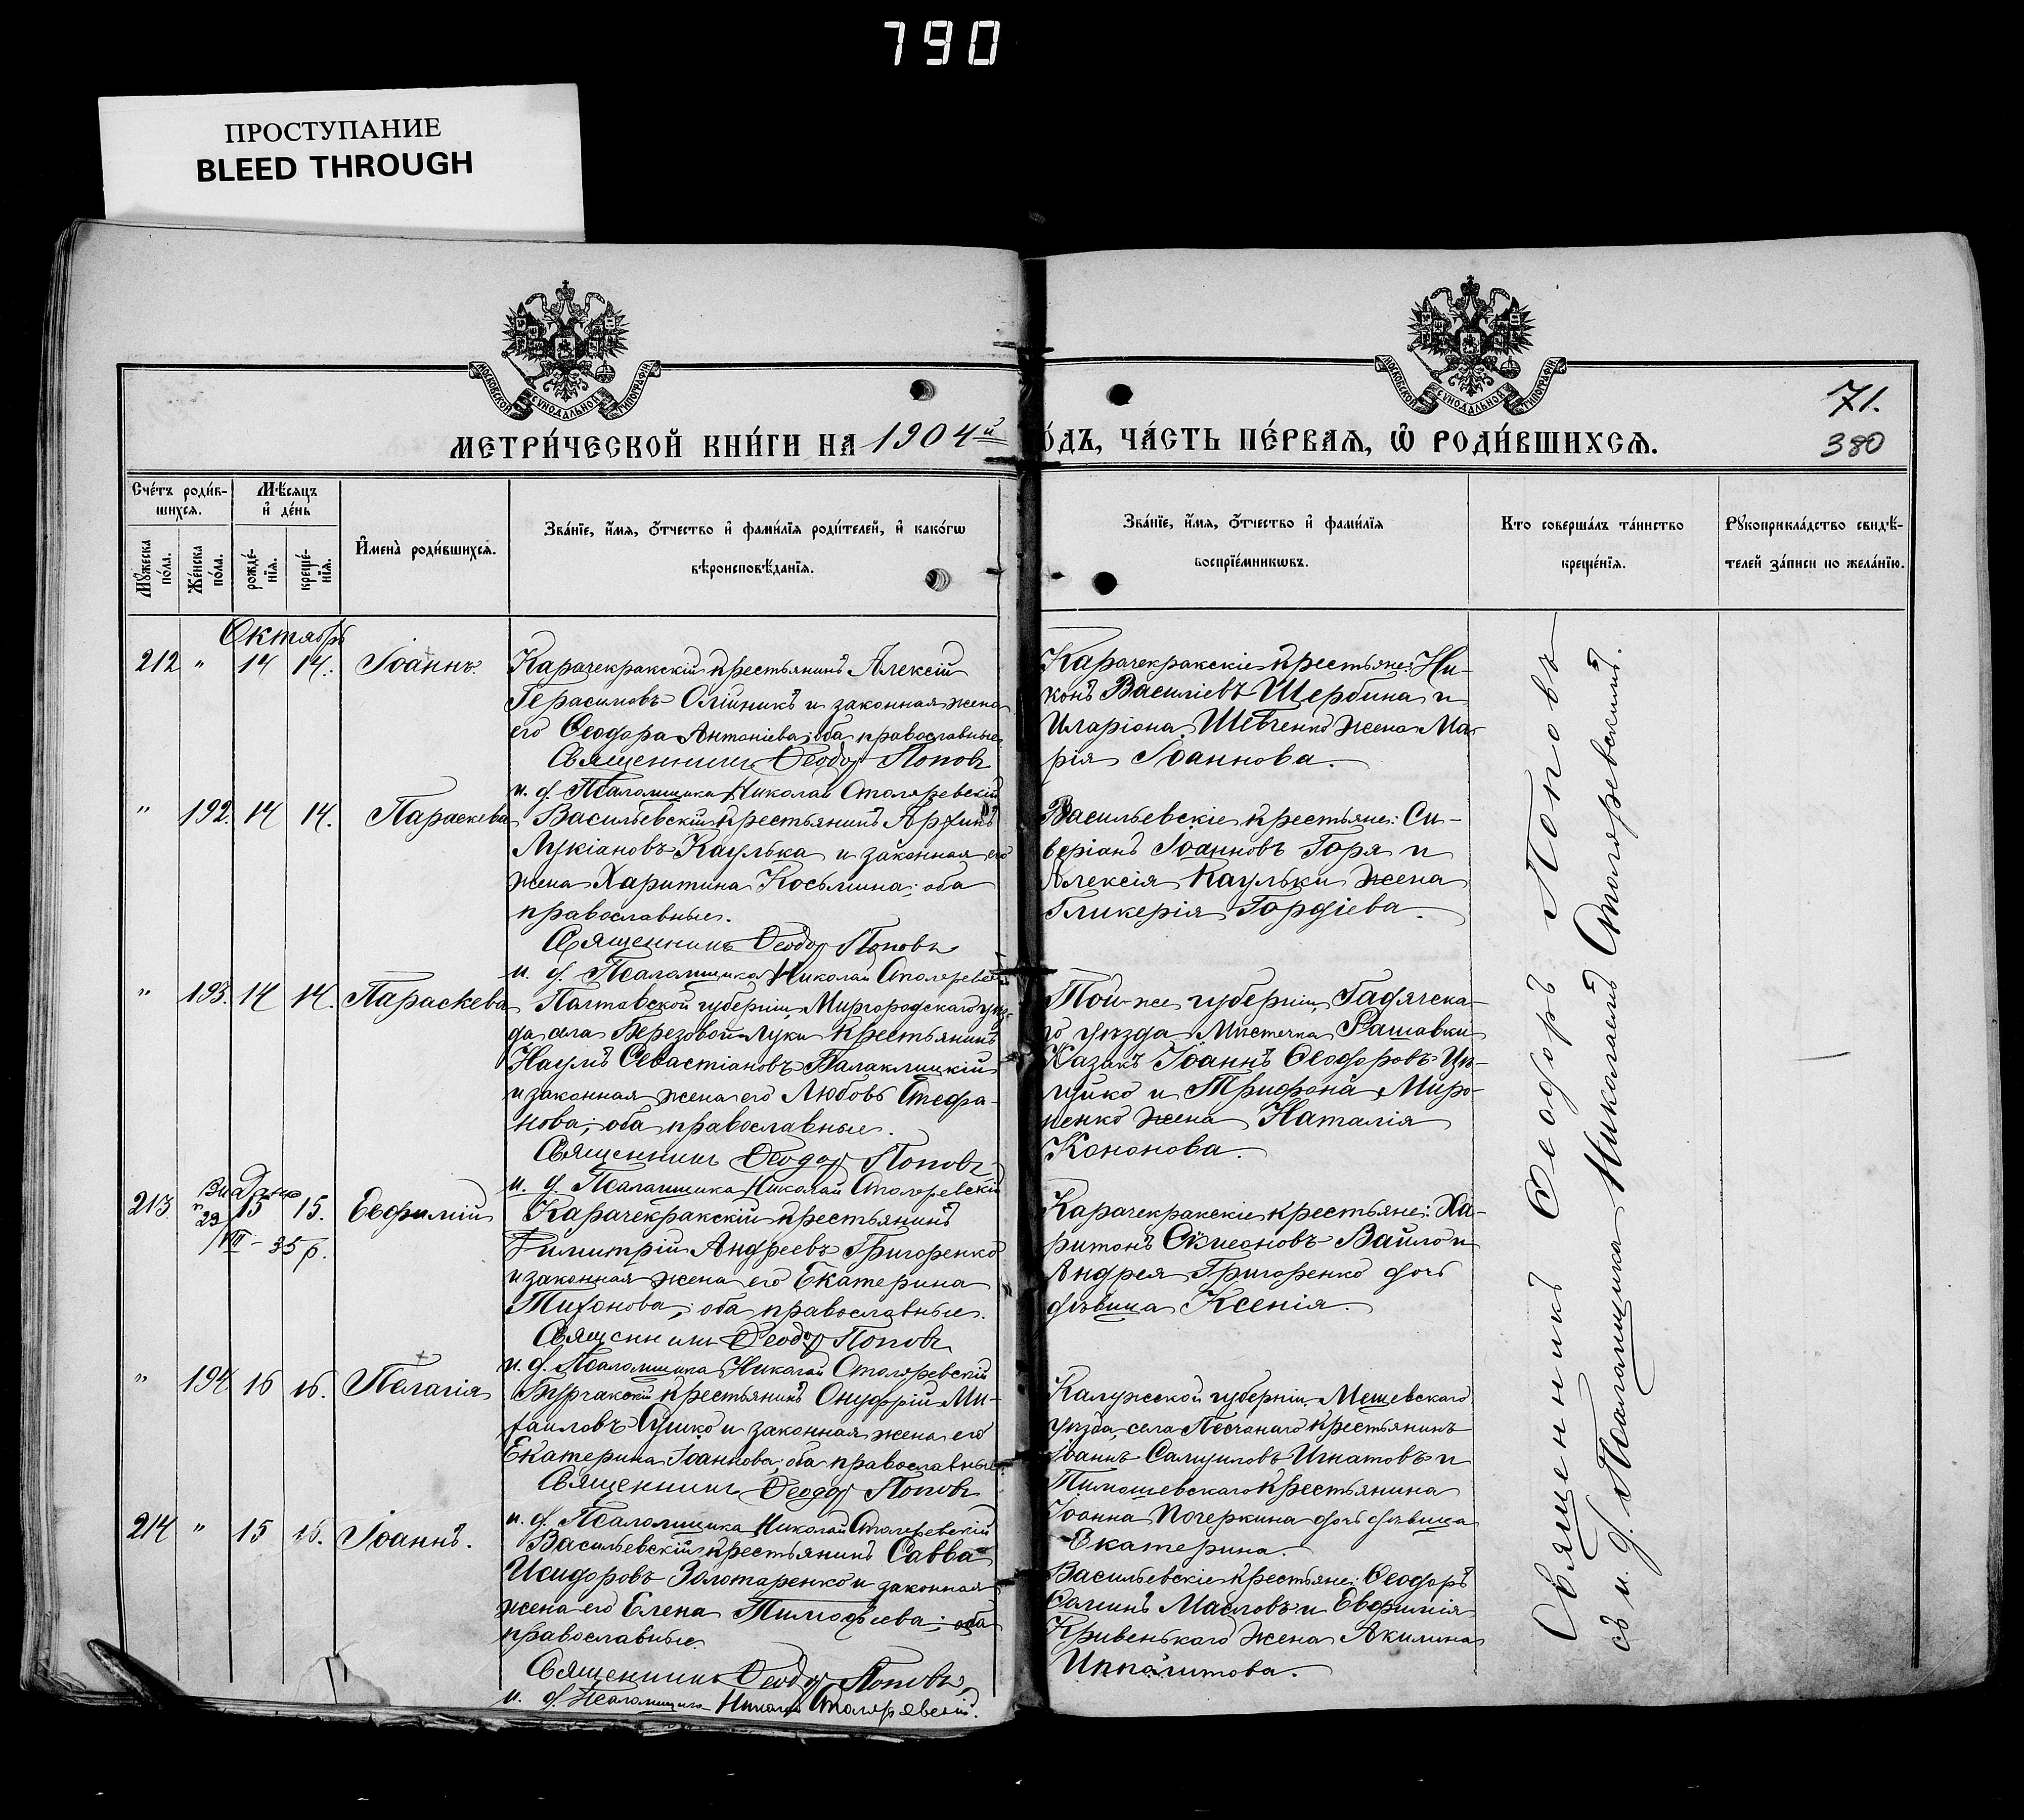 790
ПРОСТУПАНИЕ
BLEED THROUGH
МОСКОВСКОЙ СѴНОДАЛЬНОЙ ТИПОГРАФІИ
МОСКОВСКОЙ СѴНОДАЛЬНОЙ ТИПОГРАФІИ
71.
380
МЕТРИ́ЧЕСКОЙ КНИ́ГИ НА 1904й
О́ДЪ, ЧА́СТЬ ПЕ́РВАЯ, Ѡ҆ РОДИ́ВШИХСЯ.
Сче́тъ роди́в-
шихся.
Мѣ́сяцъ
и҆ де́нь
Мꙋ́жеска по́ла.
Же́нска по́ла.
рожде́-
нїя.
креще́-
нїя.
И҆мена̀ роди́вшихся.
Зва́нїе, и҆́мя, ѻ҆́тчество и҆ фами́лїя роди́телей, и҆ како́гѡ
вѣроисповѣ́данїя.
Зва́нїе, и҆́мя, ѻ҆́тчество и҆ фами́лїя
воспрїе́мникѡвъ.
Кто соверша́лъ та́инство
креще́нїя.
Рꙋкоприкла́дство свидѣ́-
телей за́писи по жела́нїю.
Октябрь
212 " 14 14. Іоаннъ.
Карачекракскій крестьянинъ Алексій
Герасимовъ Олійникъ и законная жена
его Ѳеодора Антоніева; оба православные
Священникъ Ѳеодор Поповъ
и. д. Псаломщика Николай Столяревскій
Карачекракскіе крестьяне: Ни-
конъ Василіевъ Щербина и
Иларіона Шевченко жена Ма-
рія Іоаннова.
" 192. 14 14. Параскева
Васильевскій крестьянинъ
Лукіановъ Каулька и законная его
жена Харитина Косьмина; оба
православные.
Священникъ Ѳеодор Поповъ
и. д. Псаломщика Николай Столяревскій
Васильевскіе крестьяне: Си-
веріанъ Іоанновъ Горя и
Алексія Каульки жена
Гликерія Гордіева.
" 193. 14 14. Параскева
Полтавской губерніи, Миргородскаго уѣз-
да села Березовой-Луки крестьянинъ
Наумъ Севастіановъ Балаклицкій
и законная жена его Любовь Стефа-
нова; оба православные.
Священникъ Ѳеодор Поповъ
и. д. Псаломщика Николай Столяревскій
Той-же губерніи, Гадячска-
го уѣзда Мѣстечка Рашавки
Казакъ Іоаннъ Ѳеодоровъ
и Трифона Миро-
ненко жена Наталія
Кононова.
213 15 15. Евфимій
29/VIII - 35 р.
Карачекракскій крестьянинъ
Димитрій Андреевъ Григоренко
и законная жена его Екатерина
Тихонова; оба православные.
Священникъ Ѳеодор Поповъ
и. д. Псаломщика Николай Столяревскій
Карачекракскіе крестьяне: Ха-
ритонъ Симеоновъ Вайло и
Андрея Григоренко дочь
дѣвица Ксенія.
" 194 16 16. Пелагія
Бурчакскій крестьянинъ Онуфрій Ми-
хаиловъ Сушко и законная жена его
Екатерина Іоаннова; оба православные.
Священникъ Ѳеодор Поповъ
и. д. Псаломщика Николай Столяревскій
Калужской губерніи, Мещевскаго
уѣзда, села Песчанаго крестьянинъ
Іоаннъ Самуиловъ Игнатовъ и
Тимошевскаго крестьянина
Іоанна Почеркина дочь дѣвица
Екатерина.
214 " 15 16. Іоаннъ.
Васильевскій крестьянинъ Савва
Исидоровъ Золотаренко и законная
жена его Елена Тимоѳеева; оба
православные
Священникъ Ѳеодор Поповъ
и. д. Псаломщика Николай Столяревскій.
Васильевскіе крестьяне: Ѳеодоръ
Масловъ и Евфимія
Кривенькаго жена Акилина
Ипполитова.
Священникъ Ѳеодоръ Поповъ
съ и. д. Псаломщика Николаемъ Столяревскимъ.